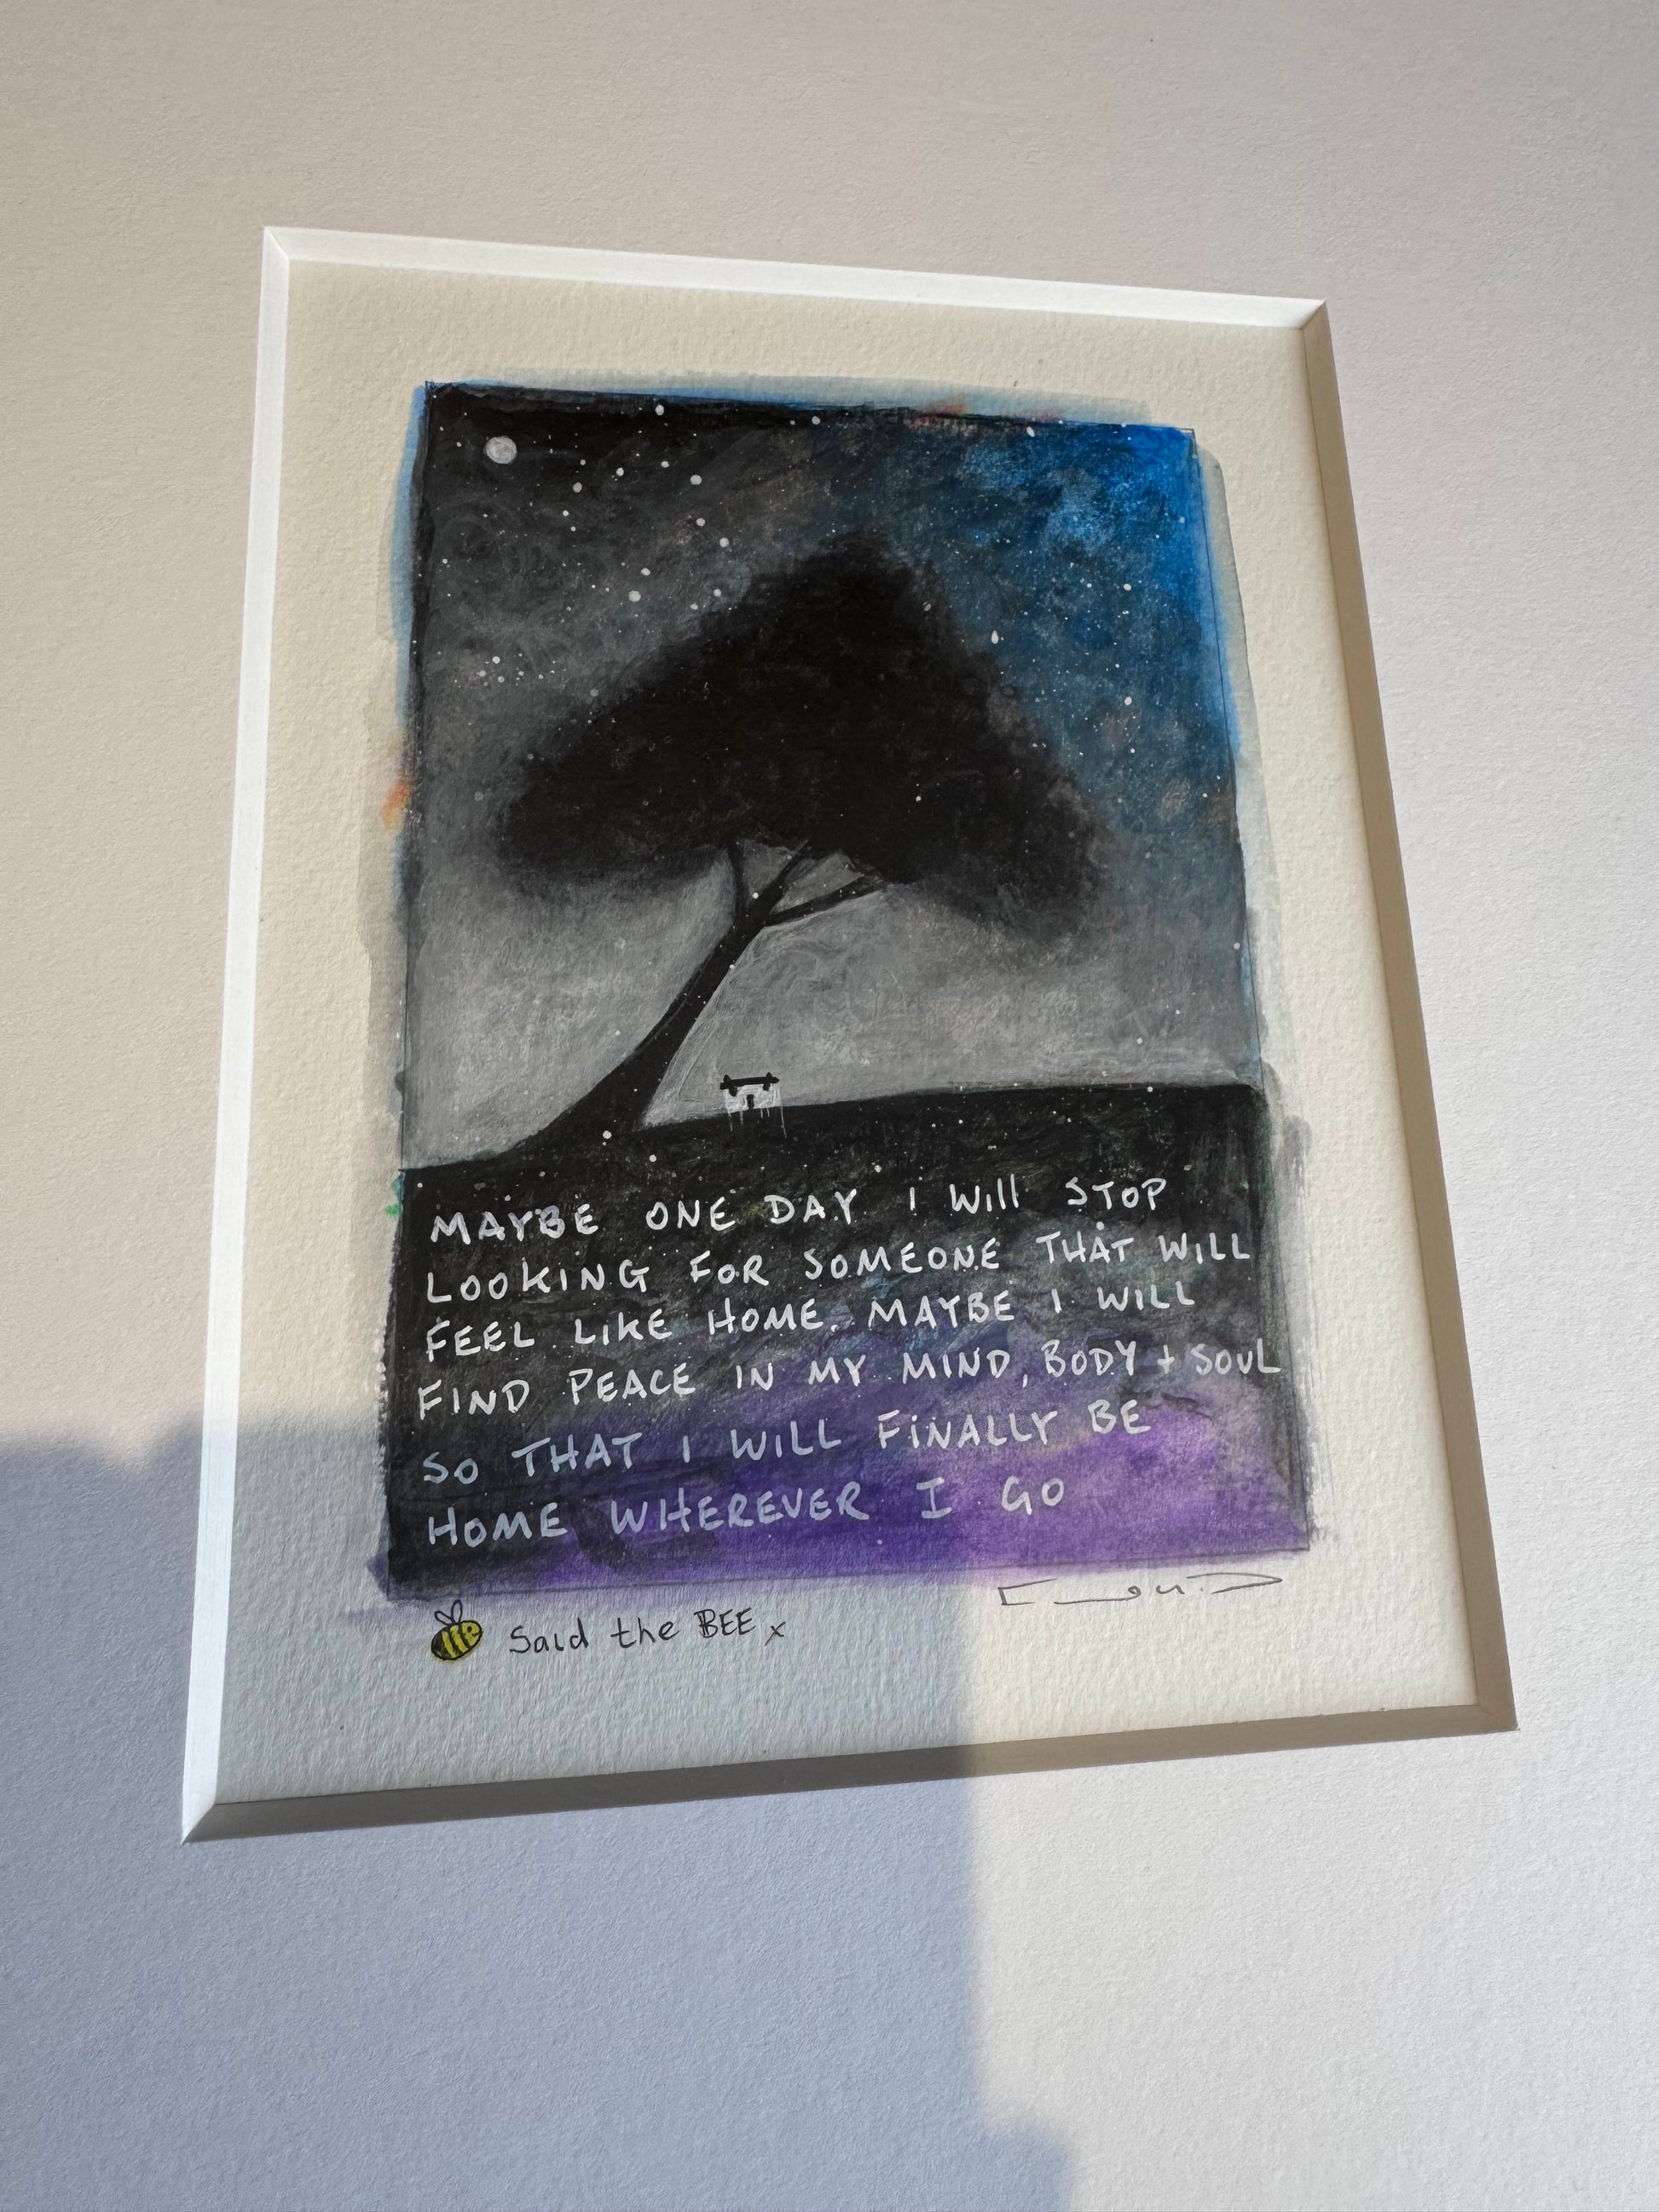 MAYBE ONE DAY I Will STOP
LOOKING FOR SOMEONE THAT WILL
FEEL LIKE HOME. MAYBE I WILL
FIND PEACE IN MY MIND, BODY + SOUL
SO THAT I WILL FINALLY BE
HOME WHEREVER I GO
Said the BEE x